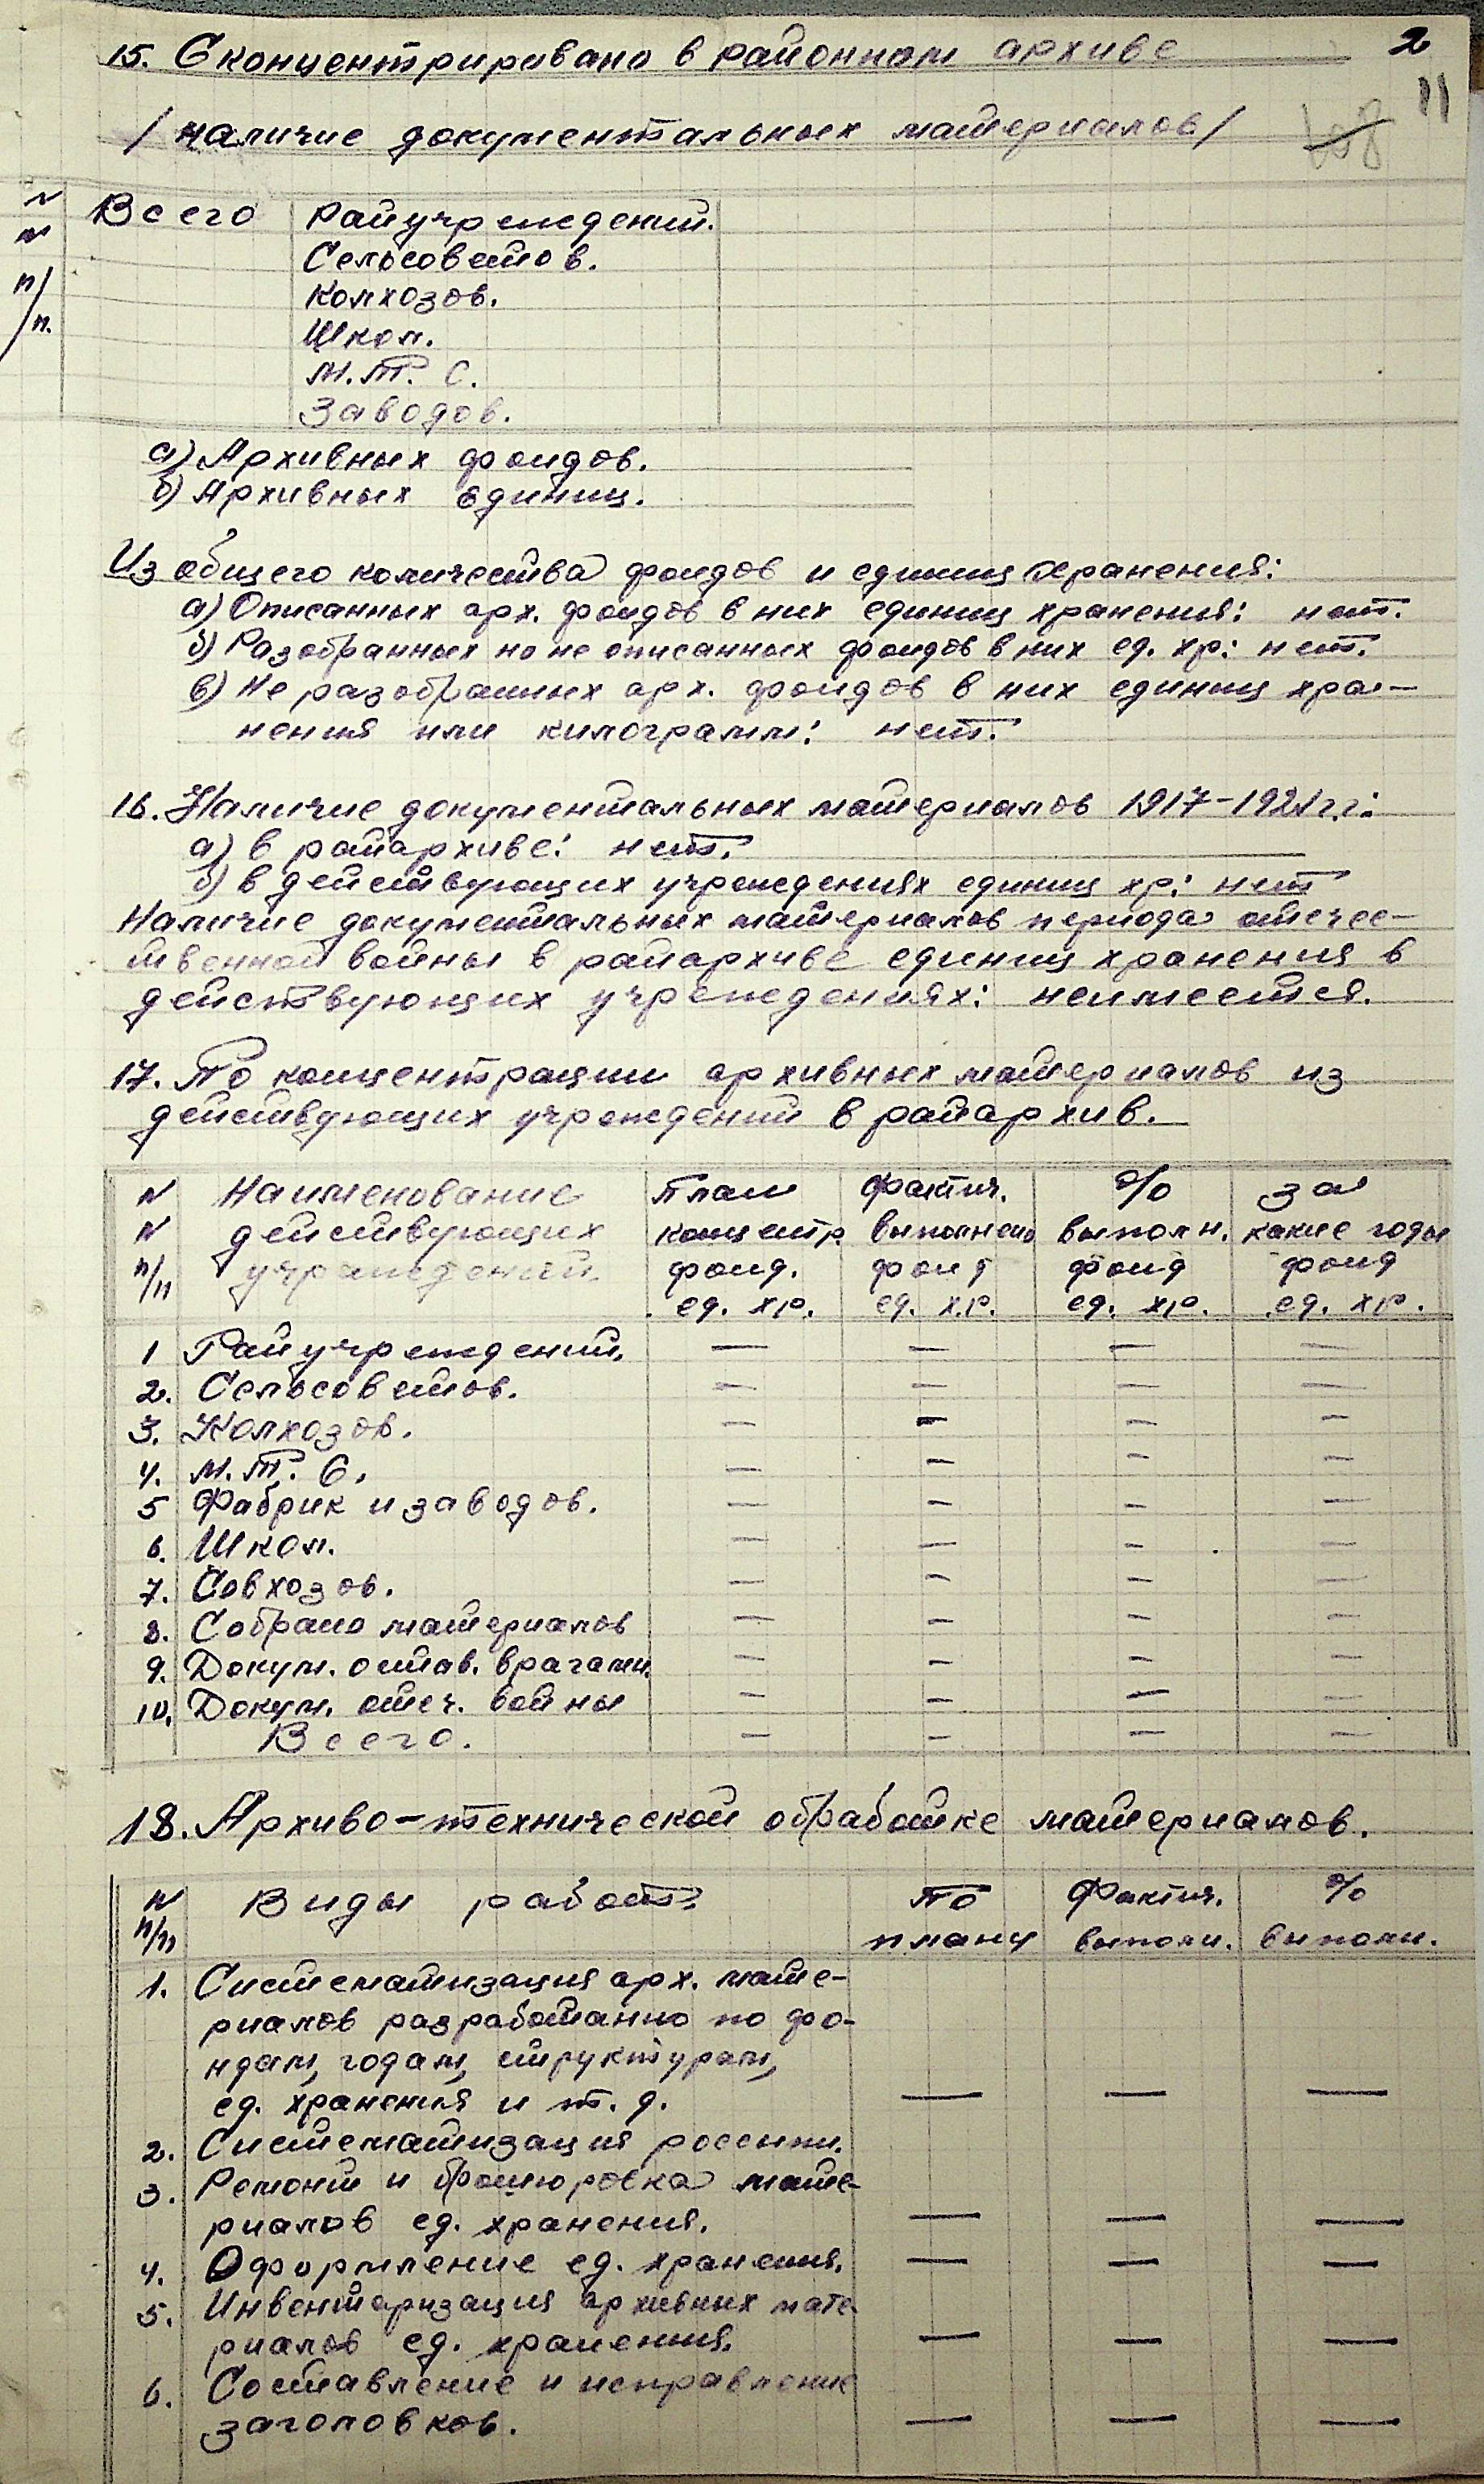 2
15. Сконцентрировано в районном архиве
11
/ наличие документальных материалов /
N Всего Райучреждений.
N Сельсоветов.
п/ Колхозов.
/п. Школ.
М.Т. С.
Заводов.
а) Архивных фондов.
б) Архивных единиц.
Из общего количества фондов и единиц хранения:
а) Описанных арх. фондов в них единиц хранения: нет.
б) Разобранных но не описанных фондов в них ед. хр: нет.
в) Не разобранных арх. фондов в них единиц хра-
нения или килограмм: нет.
16. Наличие документальных материалов 1917-1921г.г:
а) в райархиве: нет.
б) в действующих учреждениях единиц хр: нет
Наличие документальных материалов периода отече-
твенной войны в райархиве единиц хранения в
действующих учреждениях: неимеется.
17. По концентрации архивных материалов из
действующих учреждений в райархив.
N Наименование План Фактич. % За
N действующих концентр. выполнено выполн. какие годы
п/п учреждений фонд. фонд фонд фонд
ед. хр. ед. хр. ед. хр. ед. хр.
1 Райучреждений. — — — —
2. Сельсоветов. — — — —
3. Колхозов. — — — —
4. М.Т. С. — — — —
5 Фабрик и заводов. — — — —
6. Школ. — — — —
7. Совхозов. — — — —
8. Собрано материалов — — — —
9. Докум. остав. врагами. — — — —
10. Докум. отеч. войны — — — —
Всего. — — — —
18. Архиво-технической обработке материалов.
N Виды работ. По Фактич. %
п/п плану выполн. выполн.
1. Систематизация арх. мате-
риалов разработанно по фо-
ндам, годам, структурам,
ед. хранения и т. д. — — —
2. Систематизация россыпи.
3. Ремонт и брошюровка мате-
риалов ед. хранения. — — —
4. Оформление ед. хранения. — — —
5. Инвентаризация архивных мате-
риалов ед. хранения. — — —
6. Составление и исправление
заголовков. — — —